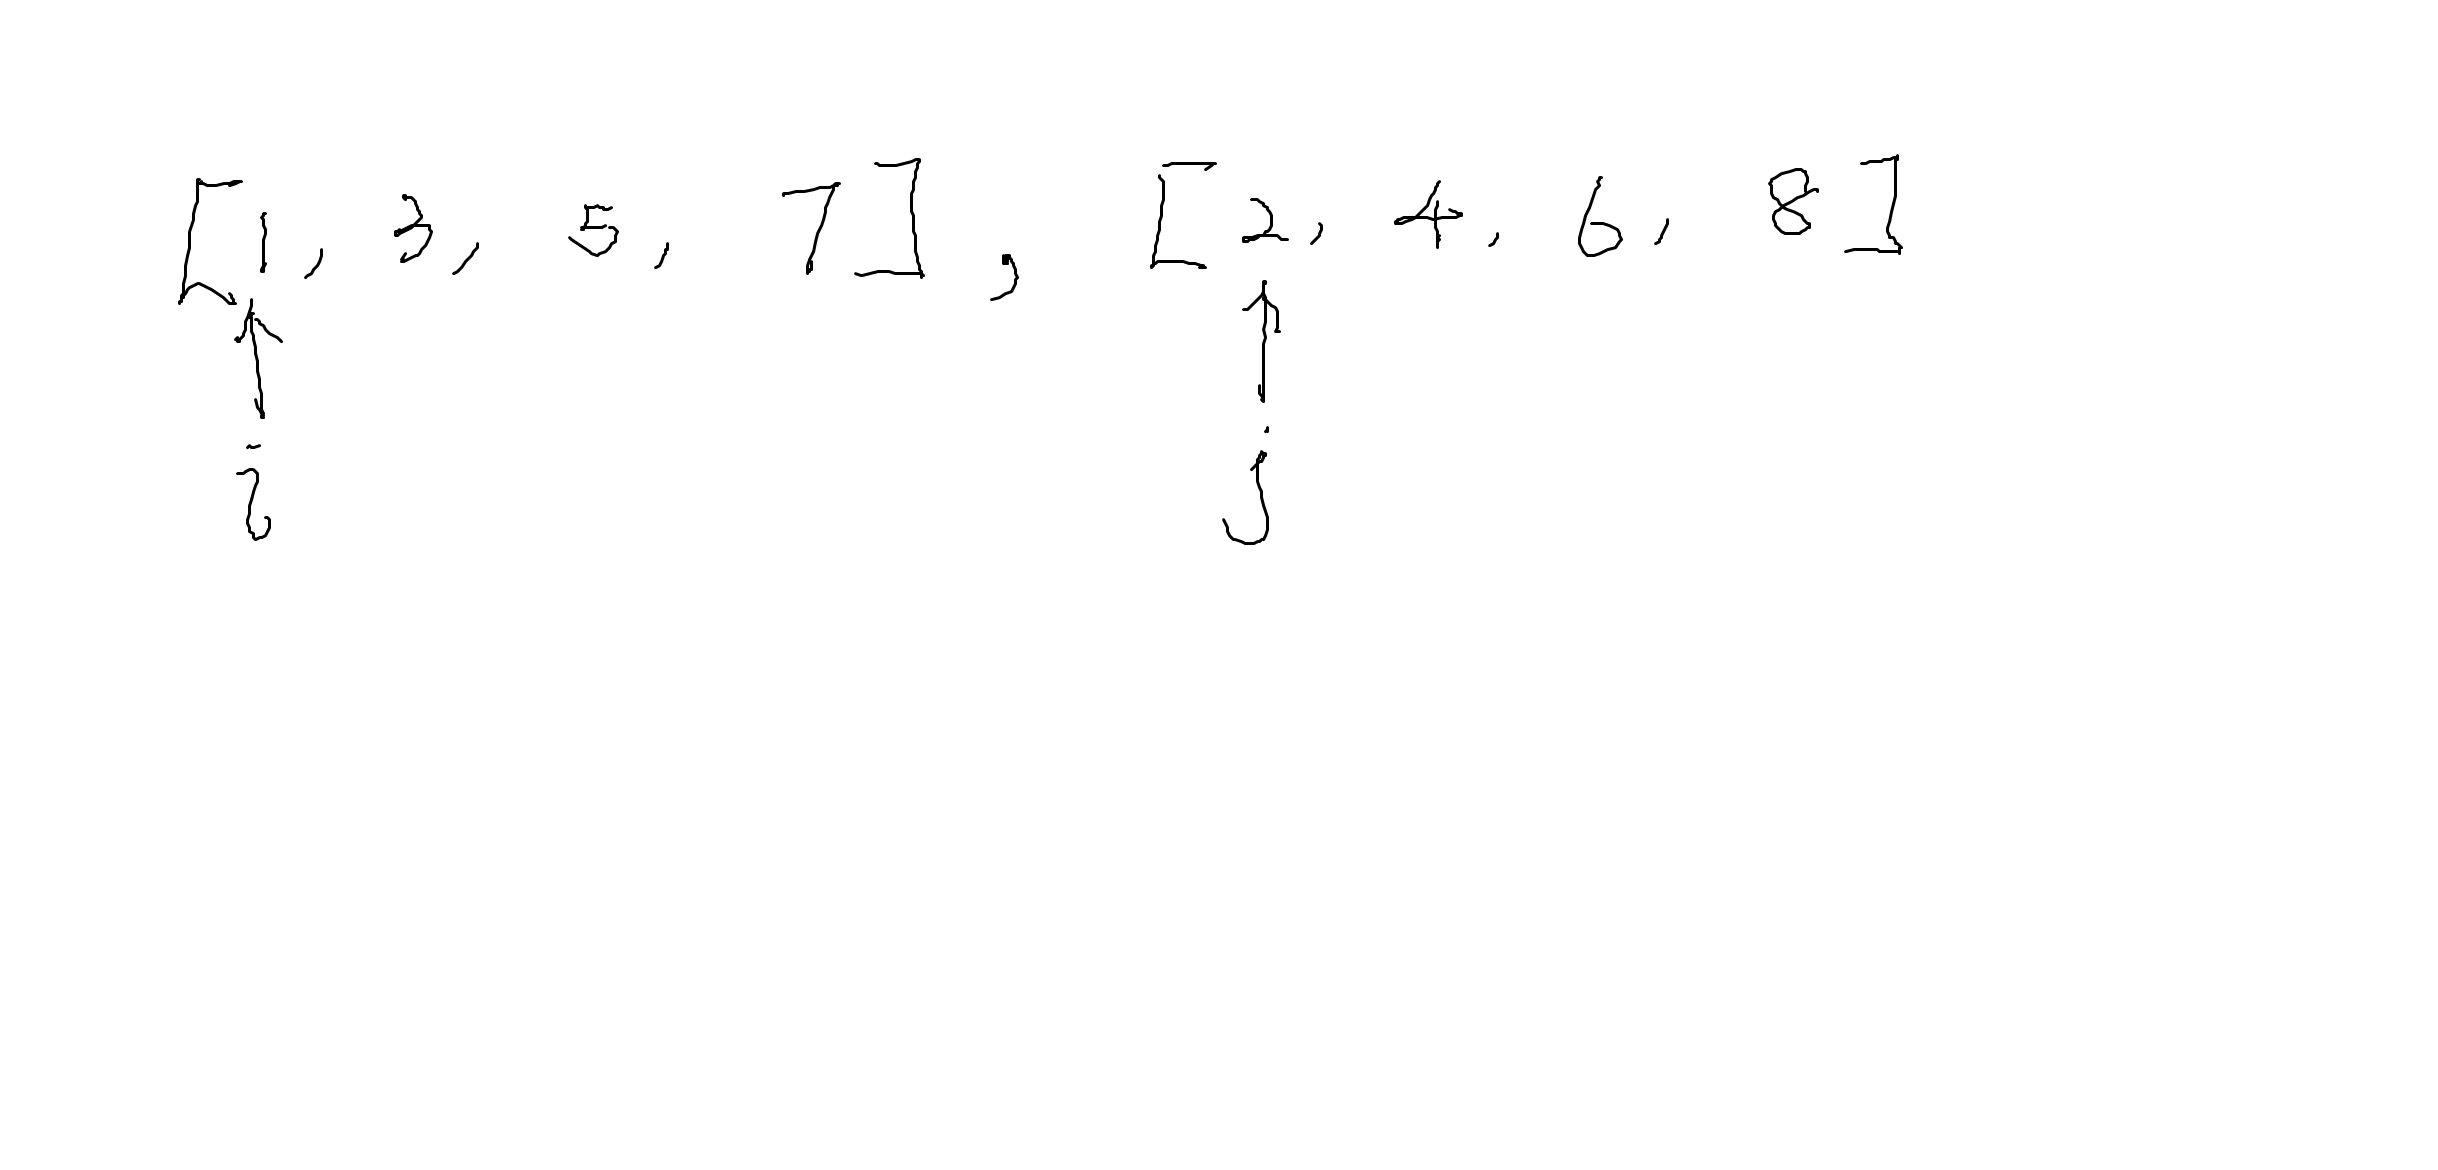 [1, 3, 5, 7], [2, 4, 6, 8]
i j